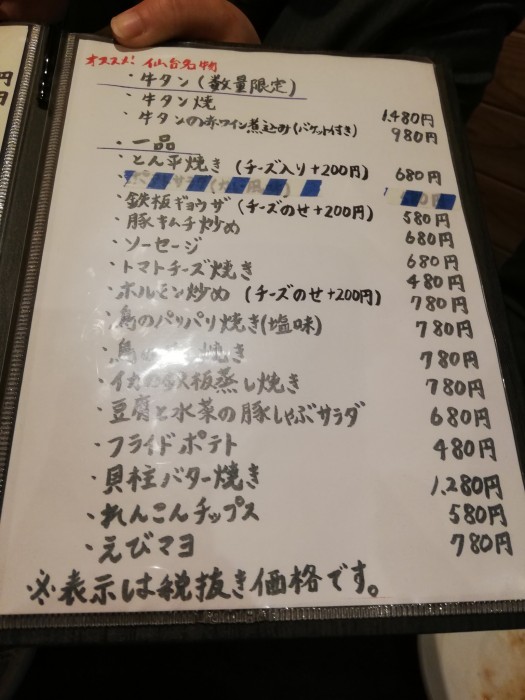 円
円
オススメ! 仙台名物
・牛タン(数量限定)
・牛タン焼 1,480円
・牛タンの赤ワイン煮込み(バゲット付き) 980円
・一品
・とん平焼き(チーズ入り+200円) 680円
・鉄板ギョウザ(チーズのせ+200円) 580円
・豚キムチ炒め 680円
・ソーセージ 680円
・トマトチーズ焼き 480円
・ホルモン炒め(チーズのせ+200円) 780円
・鳥のパリパリ焼き(塩味) 780円
・鳥 焼き 780円
・イカの鉄板蒸し焼き 780円
・豆腐と水菜の豚しゃぶサラダ 680円
・フライドポテト 480円
・貝柱バター焼き 1,280円
・れんこんチップス 580円
・えびマヨ 780円
※表示は税抜き価格です。